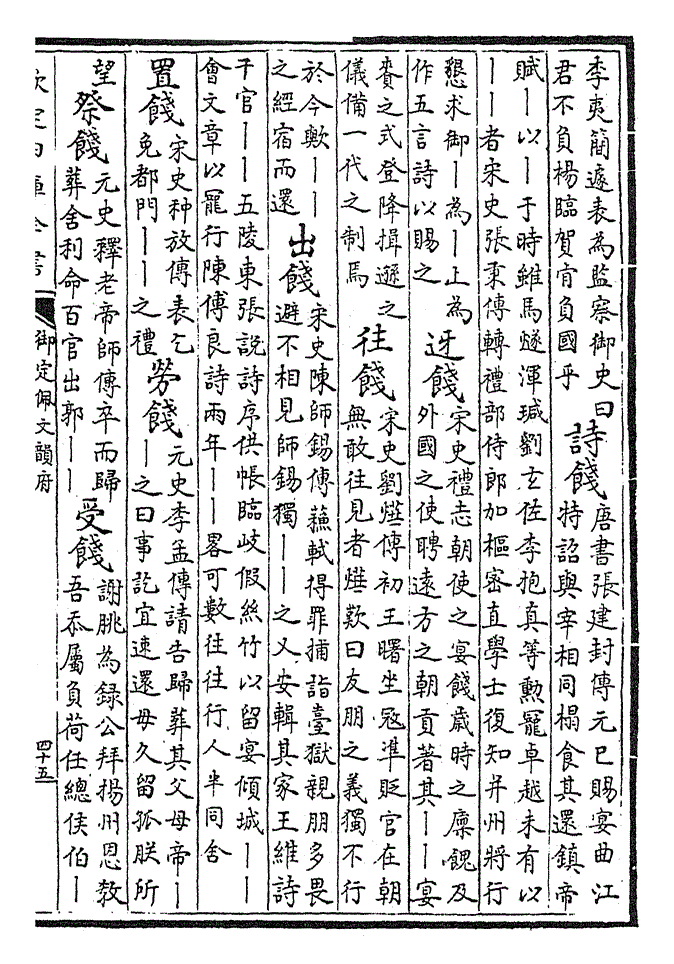 李夷簡遽表為監察御史曰
君不負楊臨賀肯負國乎
詩餞
唐書張建封傳元巳賜宴曲江
特詔與宰相同榻食其還鎮帝
賦丨以丨丨于時雖馬燧渾瑊劉玄佐李抱真等勲寵卓越未有以
丨丨者宋史張秉傳轉禮部侍郎加樞密直學士復知并州將行
懇求御丨為丨上為
作五言詩以賜之
迓餞
宋史禮志朝使之宴餞歳時之廩餼及
外國之使聘遠方之朝貢著其丨丨宴
賚之式登降揖遜之
儀備一代之制焉
往餞
宋史劉燁傳初王曙坐寇凖貶官在朝
無敢往見者燁歎曰友朋之義獨不行
於今歟丨丨
之經宿而還
出餞
宋史陳師錫傳蘇軾得罪捕詣臺獄親朋多畏
避不相見師錫獨丨丨之又安輯其家王維詩
千官丨丨五陵東張説詩序供帳臨岐假絲竹以留宴傾城丨丨
會文章以寵行陳傅良詩兩年丨丨畧可數往往行人半同舍
置餞
宋史种放傳表乞
免都門丨丨之禮
勞餞
元史李孟傳請告歸葬其父母帝丨
丨之曰事訖宜速還毋久留孤朕所
望
祭餞
元史釋老帝師傳卒而歸
葬舍利命百官出郭丨丨
受餞
謝朓為録公拜揚州恩教
吾忝屬負荷任總侯伯丨
欽定四庫全書
御定佩文韻府
四十五